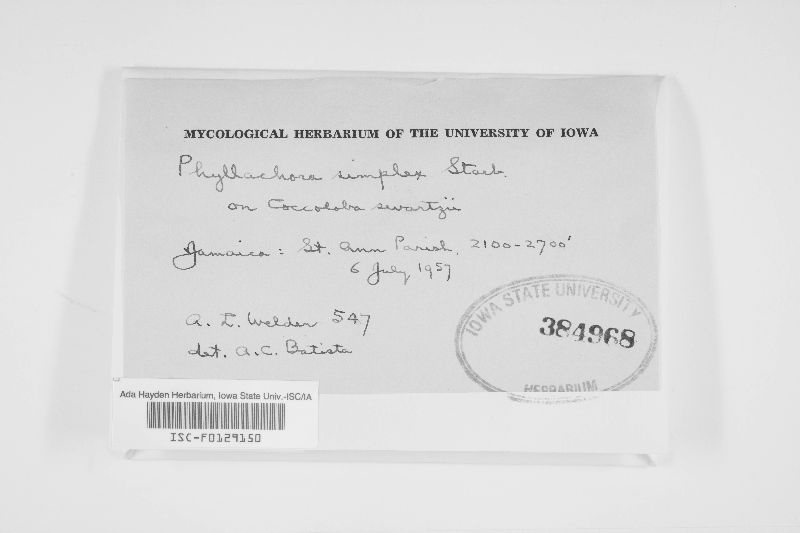 MYCOLOGICAL HERBARIUM OF THE UNIVERSITY OF IOWA
Phyllachora simplex Starb.
on Coccoloba swartzii
Jamaica: St. Ann Parish, 2100-2700'
6 July 1957
A. L. Welden 547
det. A. C. Batista
IOWA STATE UNIVERSITY
384968
HERBARIUM
Ada Hayden Herbarium, Iowa State Univ.-ISC/IA
ISC-F0129150